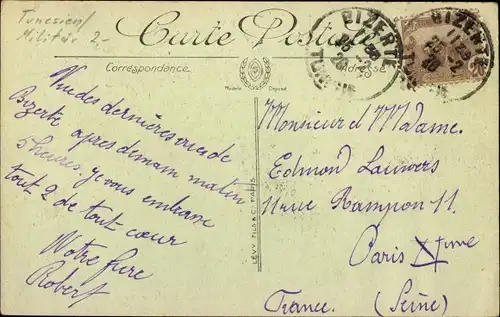 Tunesien/
Militär 2-
Carte Postale
BIZERTE
BIZERTE
Correspondance
Adresse
Modèle Déposé
Vue des dernières de
Bizerte après demain matin
5 heures. Je vous embrasse
tout 2 de tout cœur
Votre frère
Robert
LÉVY FILS & C. PARIS
Monsieur et Madame.
Edmond Lauwers
11 rue Rampon 11.
Paris XIème
France. (Seine)